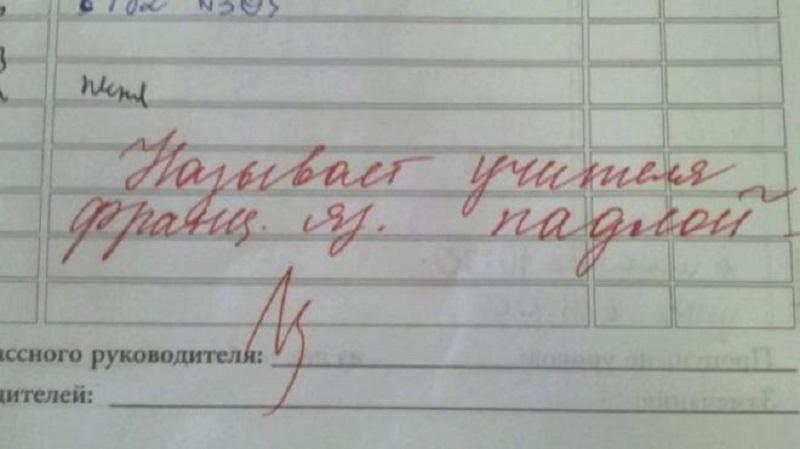 №303
Называет учителя
франц. яз. падлой
ассного руководителя:
дителей: